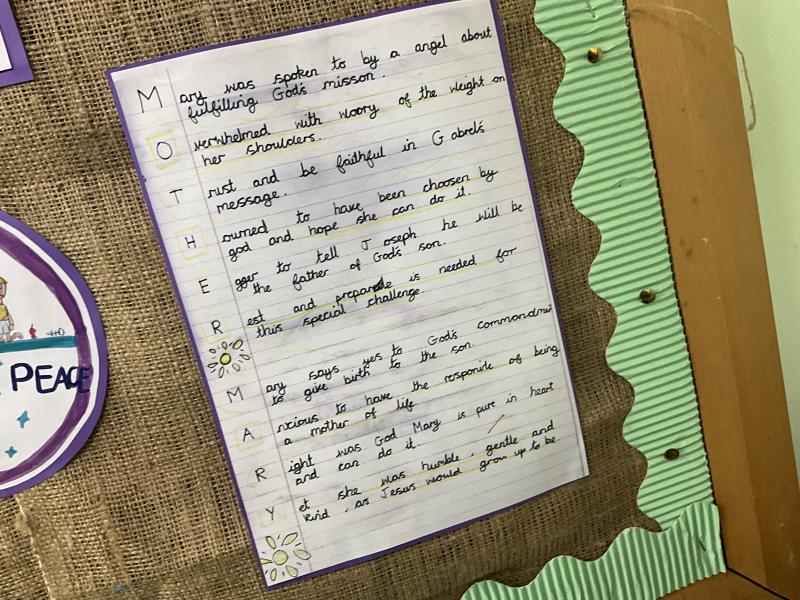 Mary was spoken to by a angel about
fulfilling God's misson.
Overwhelmed with woory of the weight on
her shoulders.
Trust and be faithful in Gabrel's
message.
Howned to have been choosen by
god and hope she can do it.
Egger to tell Joseph he will be
the father of God's son.
Rest and preparde is needed for
this special challenge.
Mary says yes to God's commandmet
to give birth to the son.
Anxious to have the responide of being
a mother of life
Right was God Mary is pure in heart
and can do it.
Yet she was humble, gentle and
kind, as Jesus would grow up to be.
PEACE